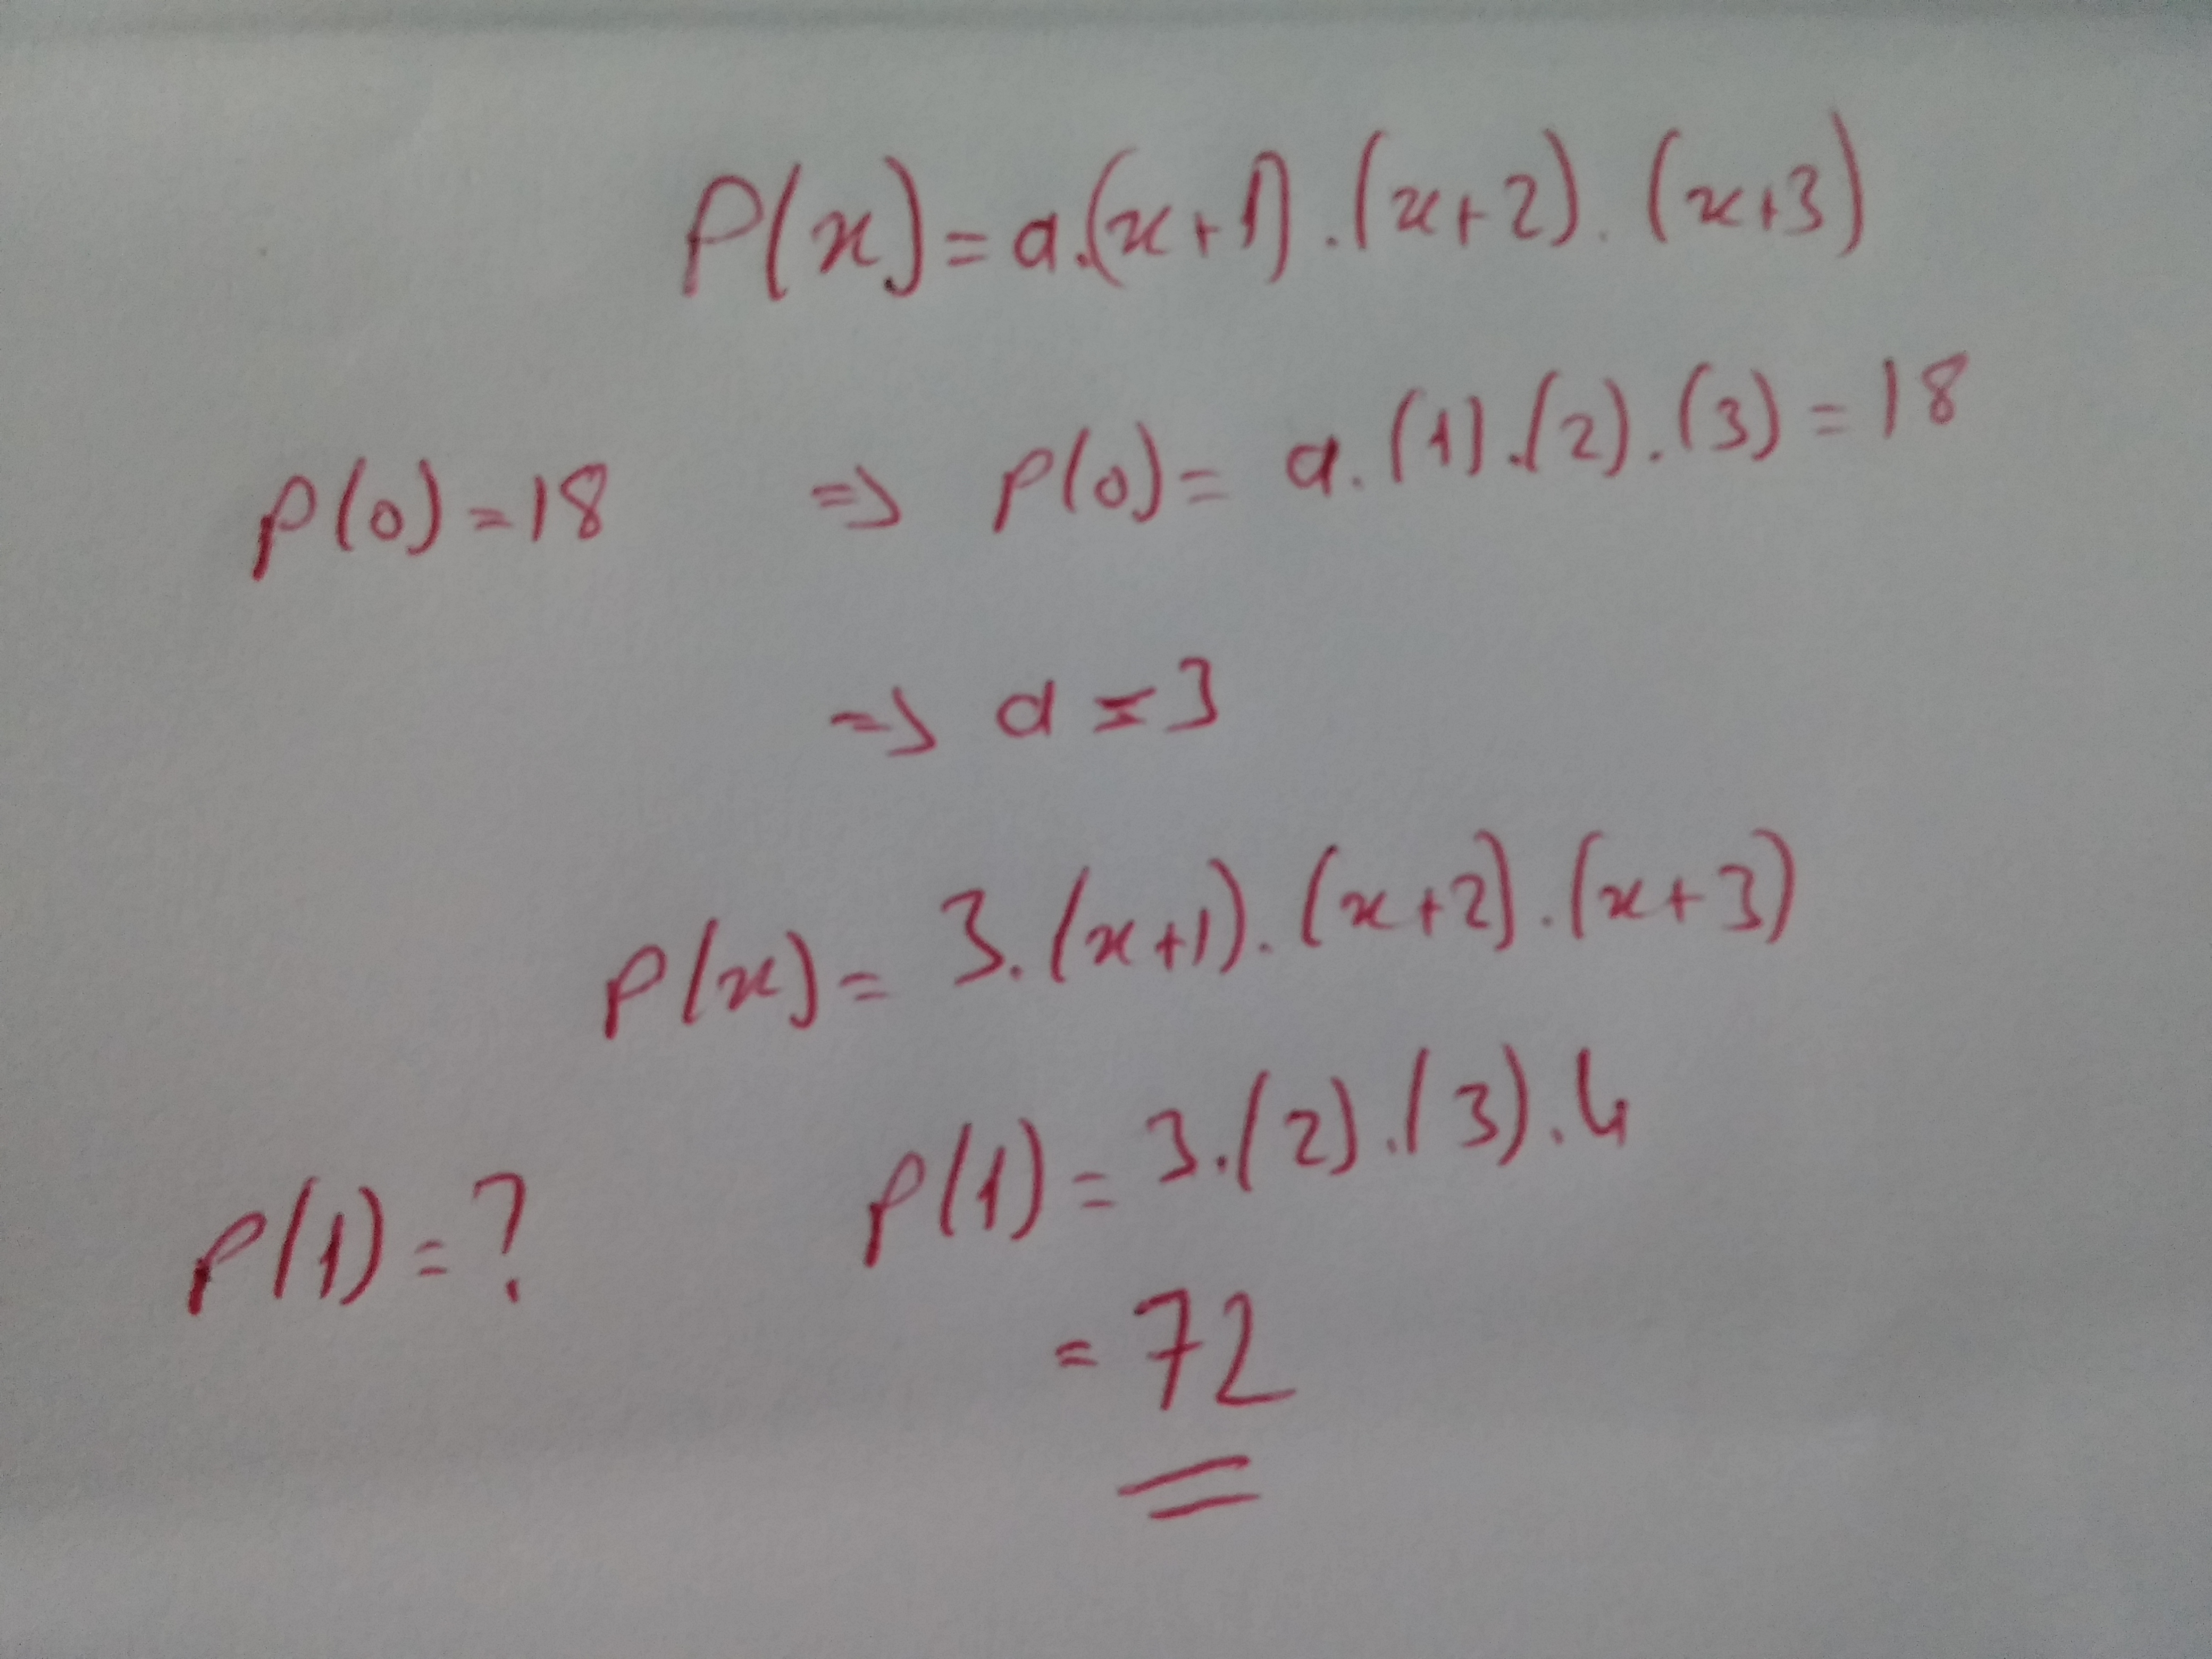 P(x) = a.(x+1).(x+2).(x+3)
P(0) = 18 => P(0) = a.(1).(2).(3) = 18
=> a = 3
P(x) = 3.(x+1).(x+2).(x+3)
P(1) = ? P(1) = 3.(2).(3).4
= 72